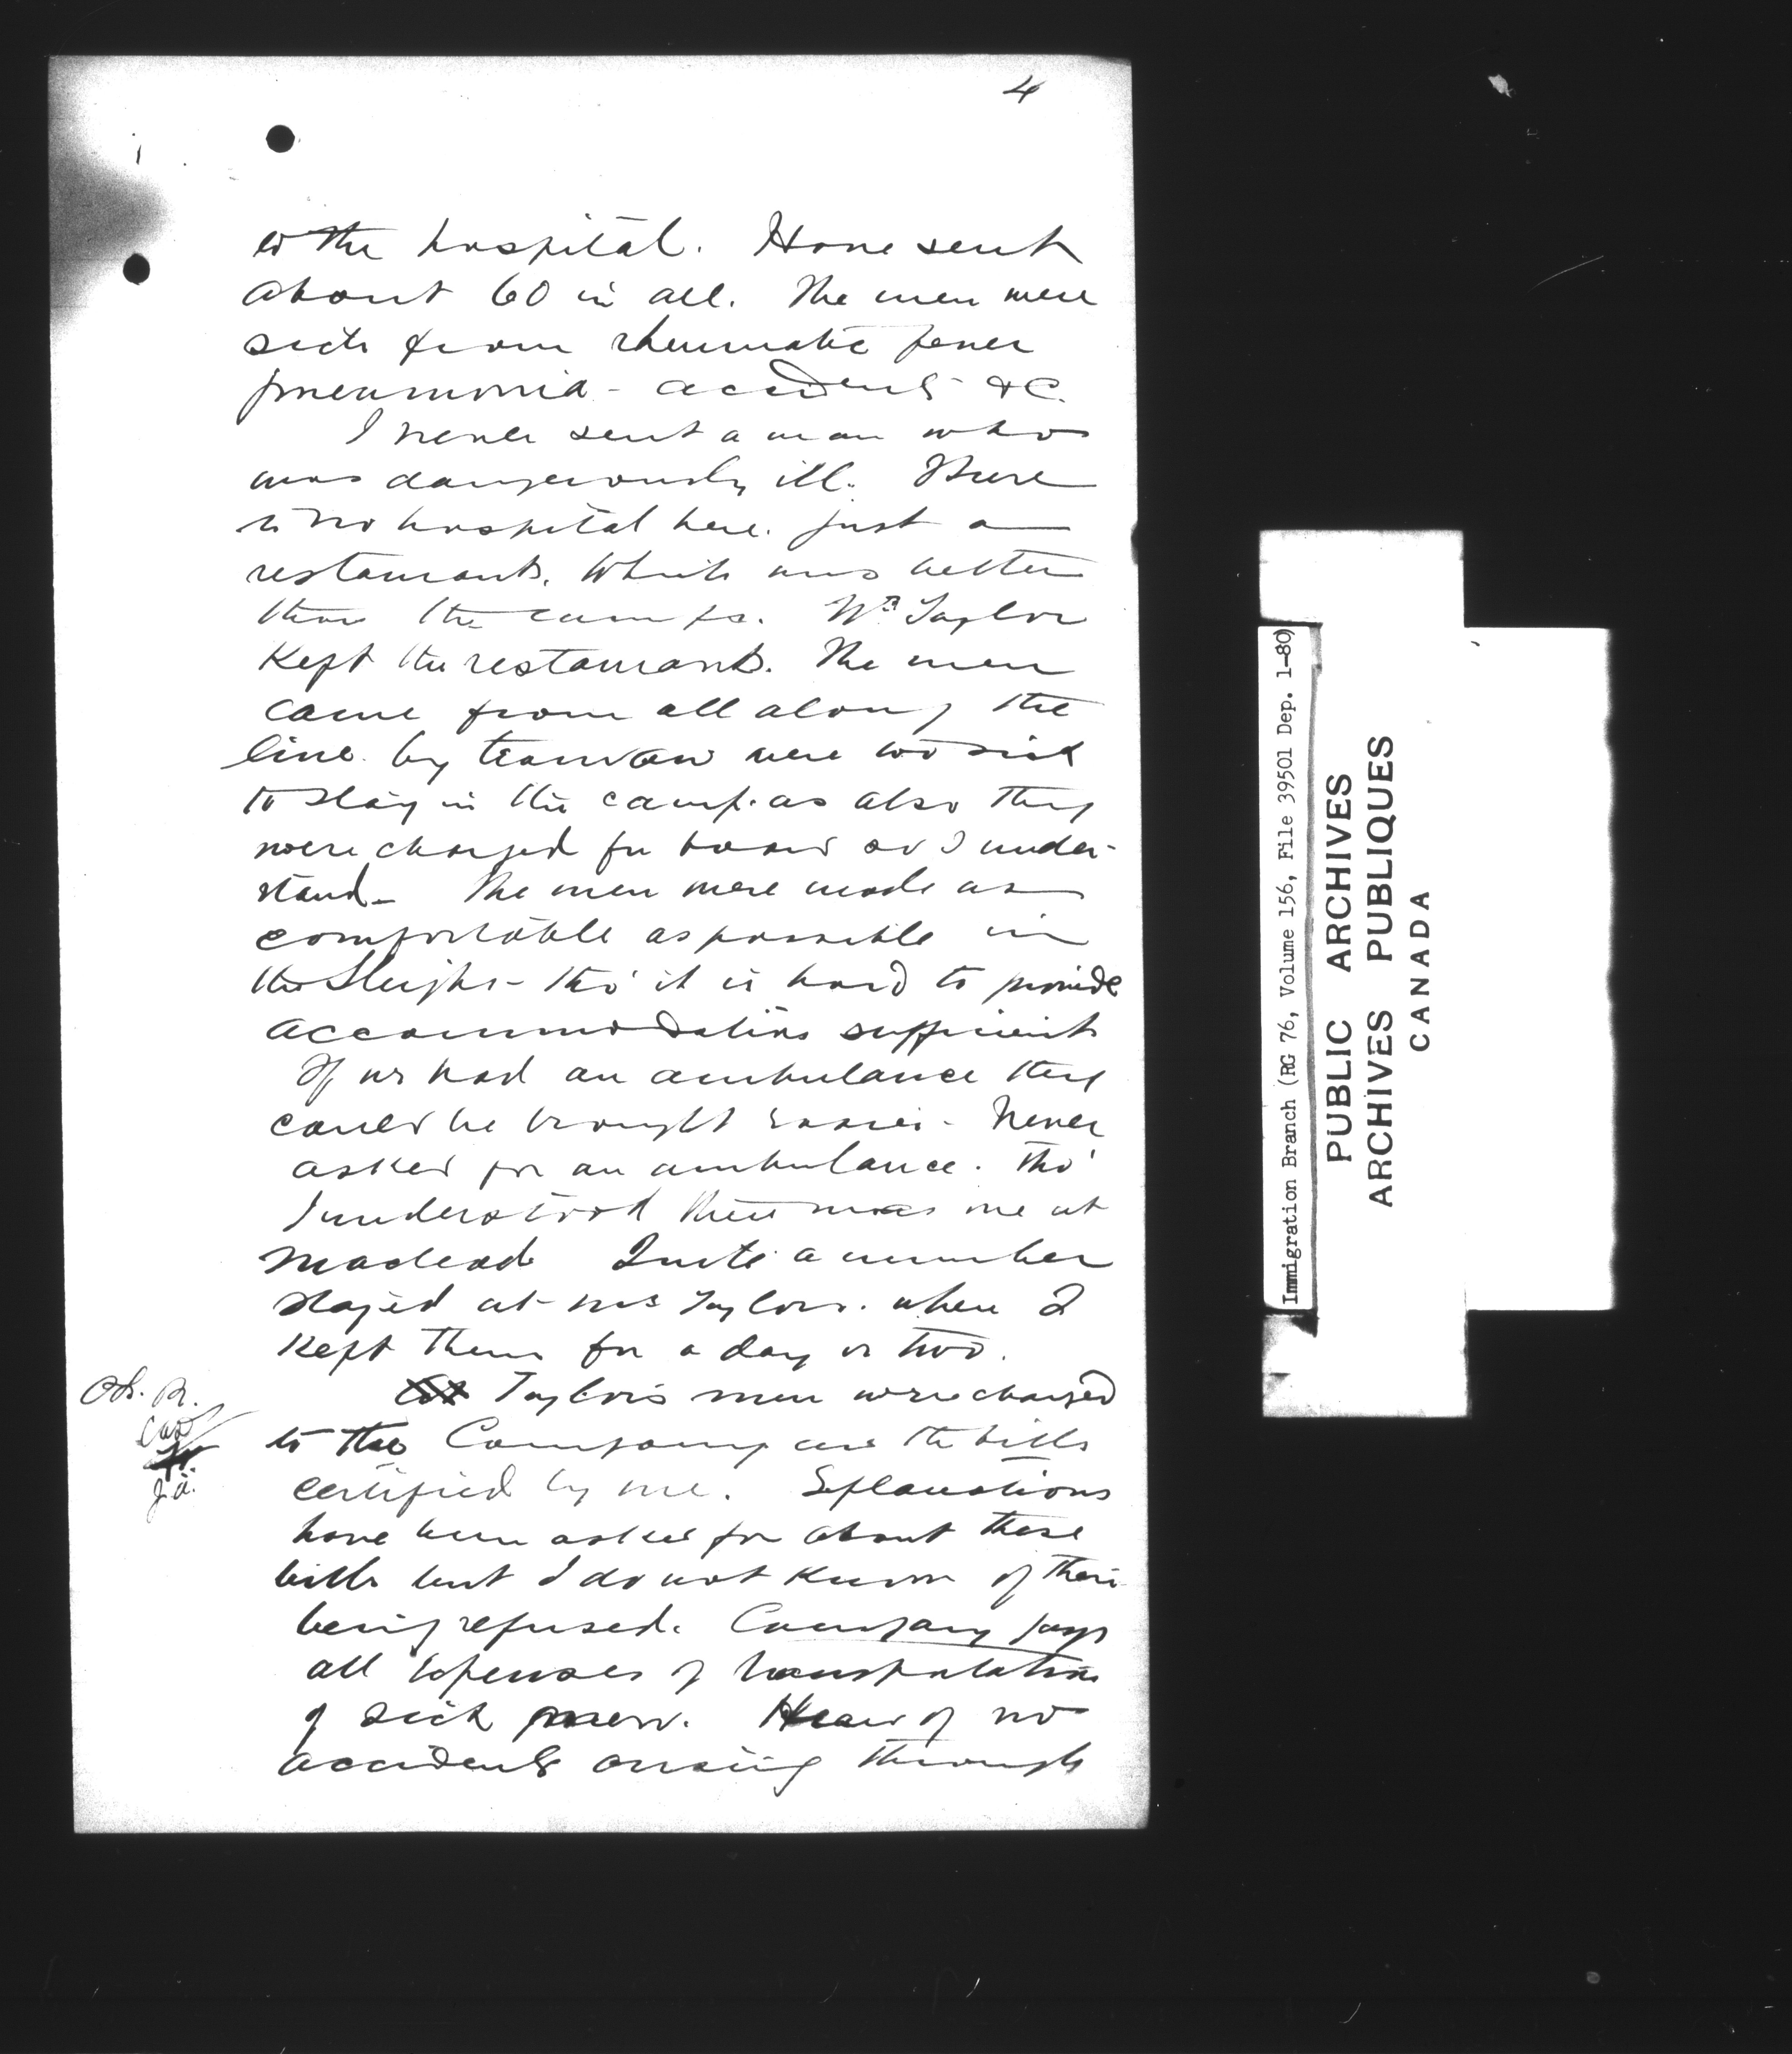 4
to the hospital. Have sent
about 60 in all. The men were
sick from rheumatic fever
pneumonia - accidents &c.
I never sent a man who
was dangerously ill. There
is no hospital here. just a
restaurant. Which was better
than the camps. Wm Taylor
Kept the restaurant. The men
came from all along the
line. by team were too sick
to stay in the camp. as also they
were charged for board so I under-
stand - The men were made as
comfortable as possible in
the Sleighs - tho' it is hard to provide
accommodations sufficient
If we had an ambulance they
could be brought easier - Never
asked for an ambulance. tho'
I understood there was one at
Macleod Quite a number
stayed at Mrs Taylors. where I
kept them for a day or two.
Taylor's men were charged
to the Company and the bills
certified by me. Explanations
have been asked for about these
bills but I do not know of their
being refused. Company pays
all expenses of transportation
of sick men. Hear of no
accidents arising through
J.A.
Immigration Branch (RG 76, Volume 156, File 39501 Dep. 1-80)
PUBLIC ARCHIVES
ARCHIVES PUBLIQUES
CANADA